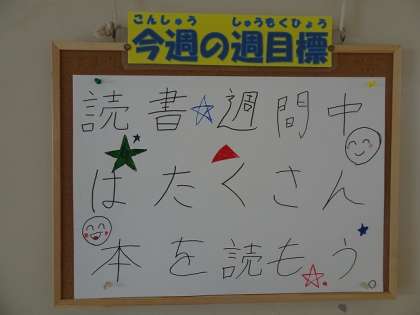 こんしゅう しゅうもくひょう
今週の週目標
読書週間中
はたくさん
本を読もう